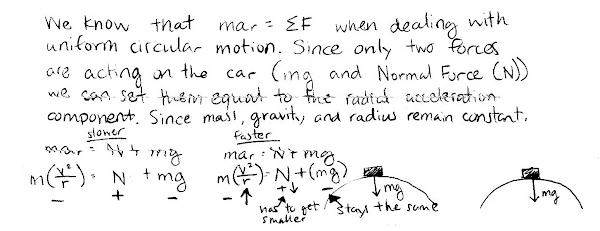 We know that mar = ΣF when dealing with
uniform circular motion. Since only two forces
are acting on the car (mg and Normal Force (N))
we can set them equal to the radial acceleration
component. Since mass, gravity, and radius remain constant.
slower faster
mar = N + mg mar = N + mg
m(v²/r) = N + mg m(v²/r) = N + (mg) mg mg
− + − − ↑ +↓ −
has to get stays the same
smaller